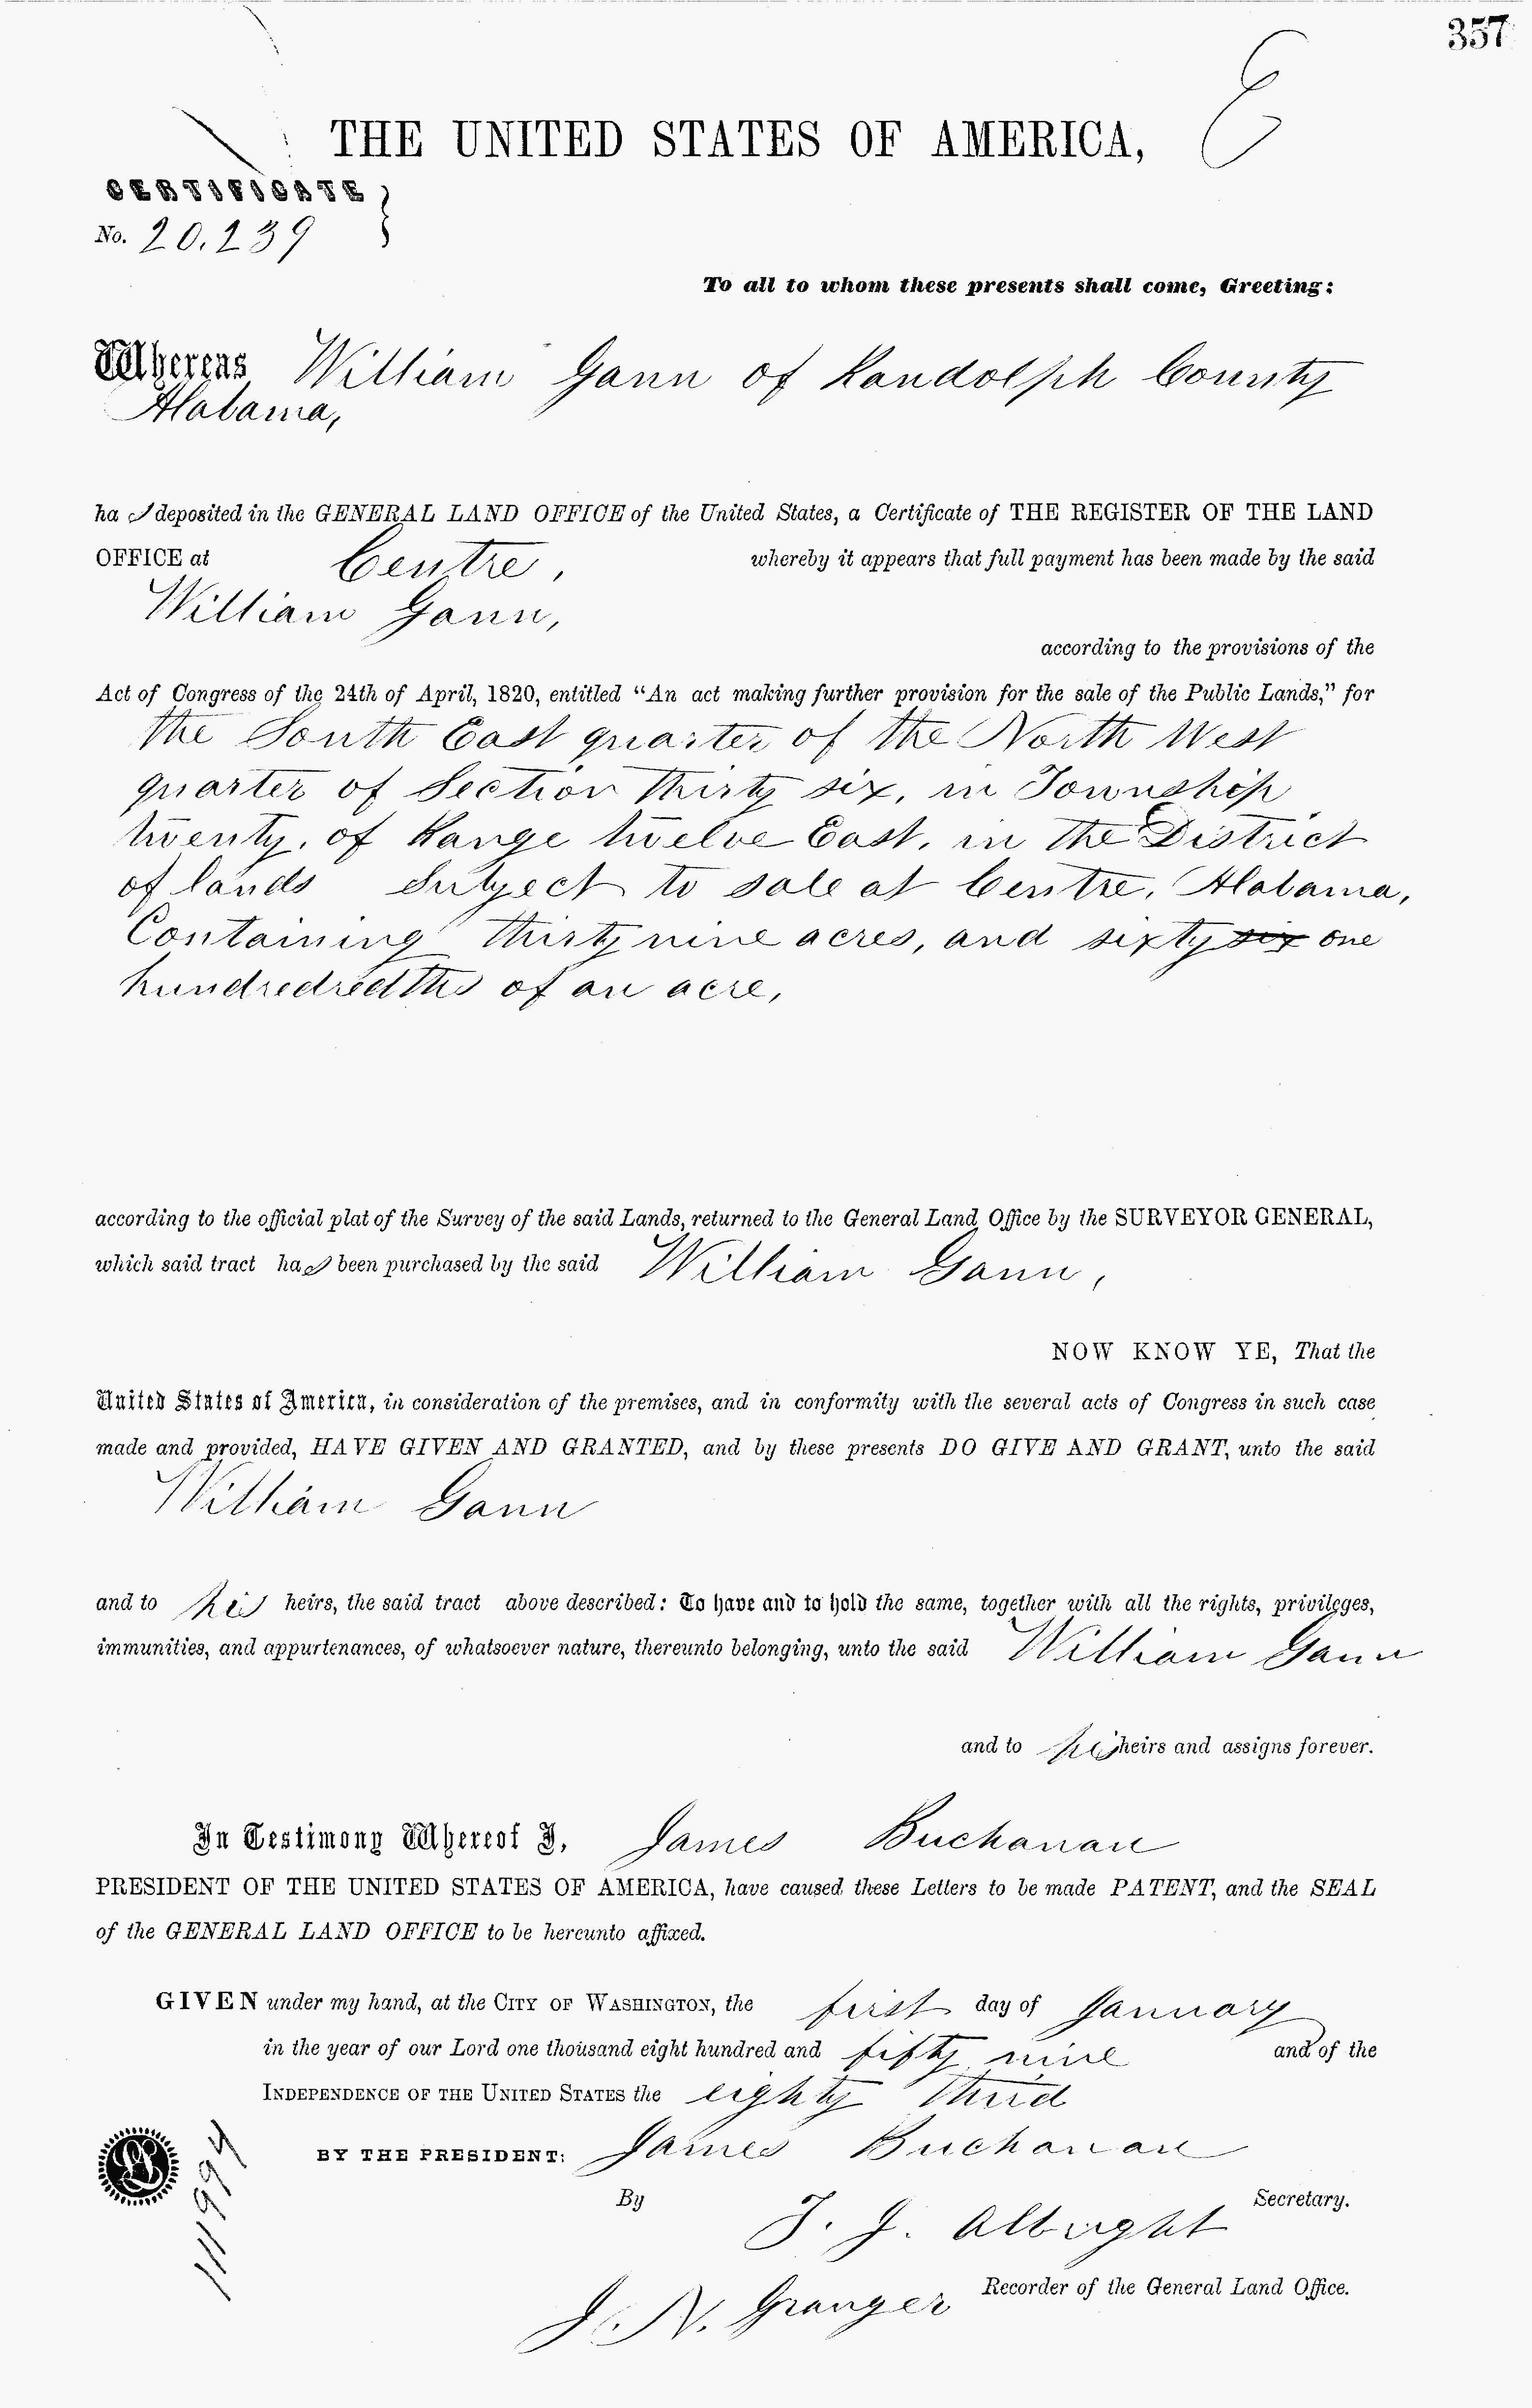 357
THE UNITED STATES OF AMERICA,
CERTIFICATE
No. 20.239
To all to whom these presents shall come, Greeting:
Whereas William Gann of Randolph County
Alabama,
has deposited in the GENERAL LAND OFFICE of the United States, a Certificate of THE REGISTER OF THE LAND
OFFICE at Centre, whereby it appears that full payment has been made by the said
William Gann,
according to the provisions of the
Act of Congress of the 24th of April, 1820, entitled “An act making further provision for the sale of the Public Lands,” for
the South East quarter of the North West
quarter of Section thirty six, in Township
twenty, of Range twelve East, in the District
of lands Subject to sale at Centre, Alabama,
Containing thirty nine acres, and sixty six one
hundredredths of an acre,
according to the official plat of the Survey of the said Lands, returned to the General Land Office by the SURVEYOR GENERAL,
which said tract has been purchased by the said William Gann,
NOW KNOW YE, That the
United States of America, in consideration of the premises, and in conformity with the several acts of Congress in such case
made and provided, HAVE GIVEN AND GRANTED, and by these presents DO GIVE AND GRANT, unto the said
William Gann
and to his heirs, the said tract above described: To have and to hold the same, together with all the rights, privileges,
immunities, and appurtenances, of whatsoever nature, thereunto belonging, unto the said William Gann
and to his heirs and assigns forever.
In Testimony Whereof I, James Buchanan
PRESIDENT OF THE UNITED STATES OF AMERICA, have caused these Letters to be made PATENT, and the SEAL
of the GENERAL LAND OFFICE to be hereunto affixed.
GIVEN under my hand, at the CITY OF WASHINGTON, the first day of January
in the year of our Lord one thousand eight hundred and fifty nine and of the
INDEPENDENCE OF THE UNITED STATES the eighty third
BY THE PRESIDENT: James Buchanan
By T. J. Albright Secretary.
J. N. Granger Recorder of the General Land Office.